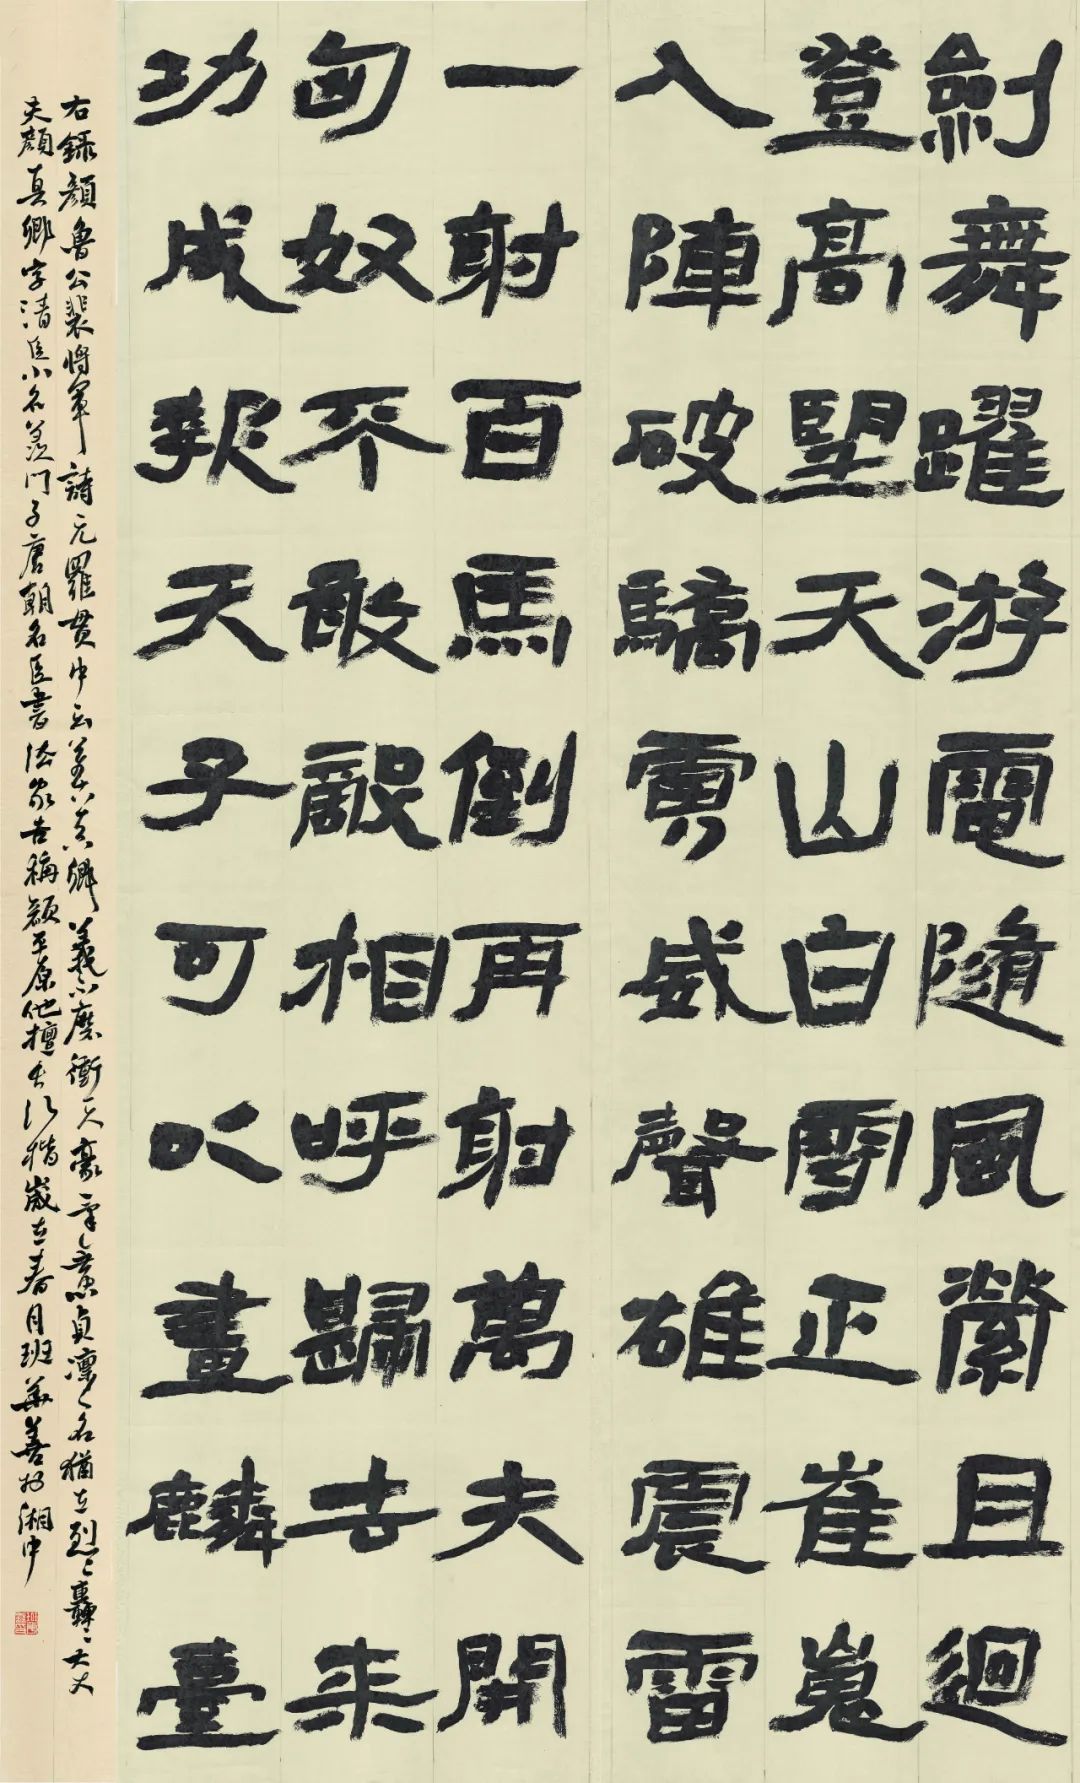 劍舞躍游電隨風縈且迴
登高望天山白雪正崔嵬
入陣破驕虜威聲雄震雷
一射百馬倒再射萬夫開
匈奴不敢敵相呼歸去来
功成報天子可以畫麟臺
右録顏魯公裴將軍詩元羅貫中云真卿義不磨衝天豪氣貞凜凜名猶在烈烈轟轟大丈
夫顏真卿字清臣小名羨門子唐朝名臣書法家世稱顏平原他擅長行楷歲在春月班華善於湘中